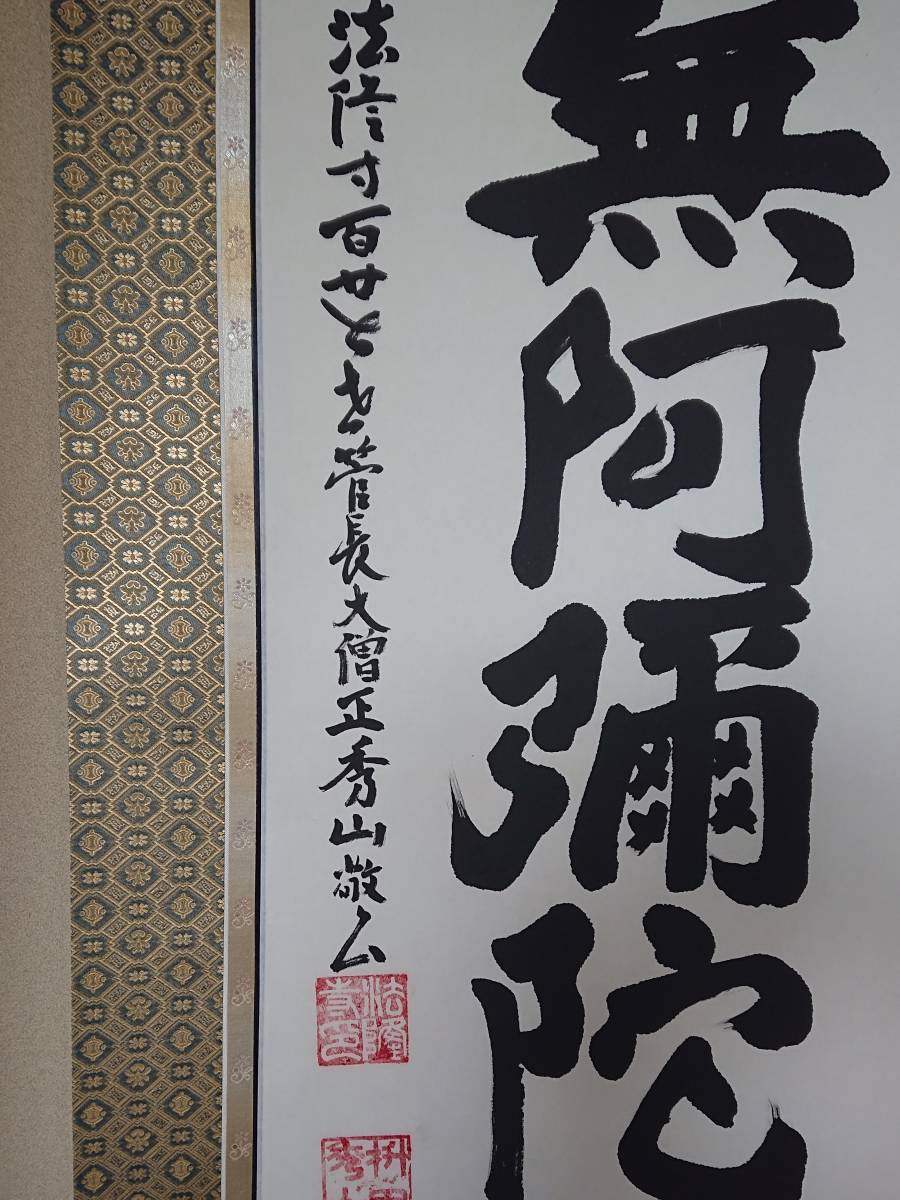 無阿彌陀
法隆寺百廿七世管長大僧正秀山敬
法隆寺印